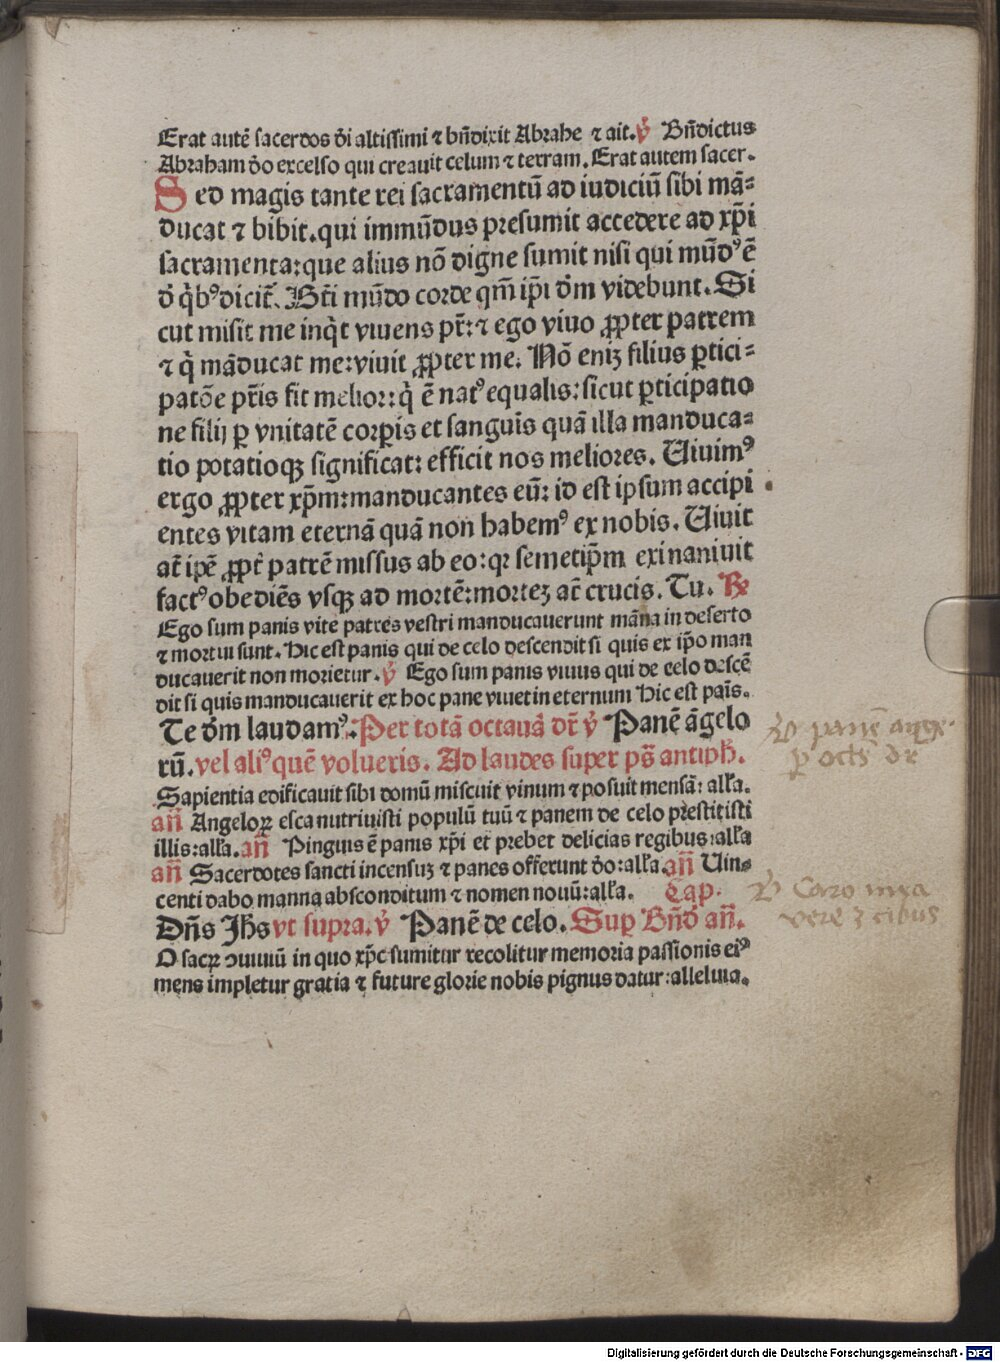 Erat autē sacerdos d̄i altissimi ⁊ bn̄dixit Abrahe ⁊ ait. ℣ Bn̄dictus
Abraham d̄o excelso qui creauit celum ⁊ terram. Erat autem sacer.
Sed magis tante rei sacramentū ad iudiciū sibi mā⸗
ducat ⁊ bibit. qui immūdus presumit accedere ad xp̄i
sacramenta: que alius nō digne sumit nisi qui mūdꝰ ē
d̄ q̇bꝰ dicit᷑. Bt̄i mūdo corde qm̄ ip̄i d̄m videbunt. Si
cut misit me inq̇t viuens pr̄: ⁊ ego viuo ꝓpter patrem
⁊ q̇ māducat me: viuit ꝓpter me. Nō eniꝫ filius ꝑtici⸗
patōe pr̄is fit melior: q̇ ē natꝰ equalis: sicut ꝑticipatio
ne filij ꝑ vnitatē corꝑis et sanguīs quā illa manduca⸗
tio potatioqꝫ significat: efficit nos meliores. Uiuimꝰ
ergo ꝓpter xp̄m: manducantes eū: id est ipsum accipi
entes vitam eternā quā non habemꝰ ex nobis. Uiuit
at̄ ip̄e ꝓpt̄ patrē missus ab eo: qꝛ semetip̄m exinaniuit
factꝰ obediēs vsqꝫ ad mortē: morteꝫ at̄ crucis. Tu. ℞
Ego sum panis vite patres vestri manducauerunt māna in deserto
⁊ mortui sunt. Hic est panis qui de celo descendit si quis ex ip̄o man
ducauerit non morietur. ℣ Ego sum panis viuus qui de celo descē
dit si quis manducauerit ex hoc pane viuet in eternum Hic est pais̄.
Te d̄m laudamꝰ. Per totā octauā dr̄ ℣ Panē āgelo
rū. vel aliꝰ quē volueris. Ad laudes super ps̄ antiph̄.
Sapientia edificauit sibi domū miscuit vinum ⁊ posuit mensā: alľa.
an̄ Angeloꝝ esca nutriuisti populū tuū ⁊ panem de celo prestitisti
illis: alľa. an̄ Pinguis ē panis xp̄i et prebet delicias regibus: alľa
an̄ Sacerdotes sancti incensuꝫ ⁊ panes offerunt d̄o: alľa. an̄ Uin⸗
centi dabo manna absconditum ⁊ nomen nouū: alľa. Cap.
Dn̄s Jhs vt supra. ℣ Panē de celo. Suꝑ Bn̄d an̄.
O sacꝝ ↄuiuiū in quo xp̄c sumitur recolitur memoria passionis eiꝰ
mens impletur gratia ⁊ future glorie nobis pignus datur: alleluia.
℣ panē ange.
ꝑ oct̄s dr̄
℣ Caro mea
vere ⁊ cibus
Digitalisierung gefördert durch die Deutsche Forschungsgemeinschaft - DFG